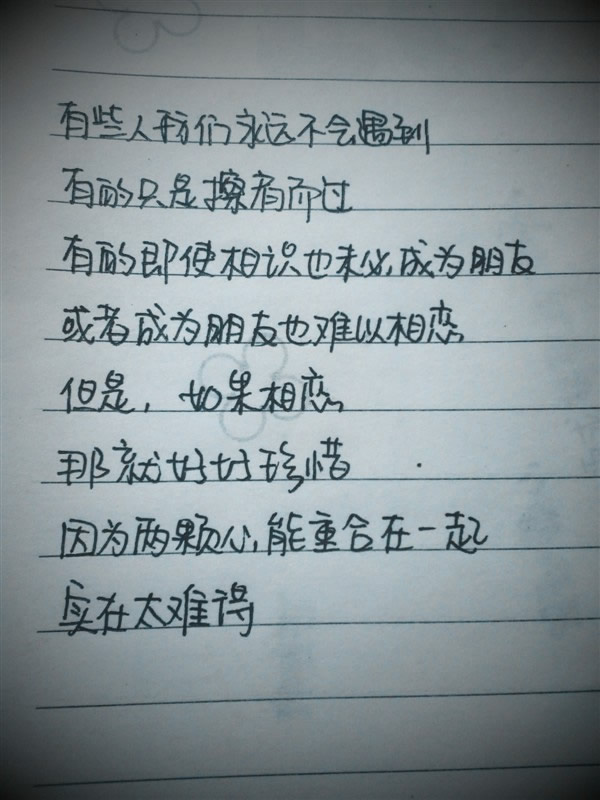 有些人我们永远不会遇到
有的只是擦肩而过
有的即使相识也未必成为朋友
或者成为朋友也难以相恋
但是，如果相恋
那就好好珍惜
因为两颗心，能重合在一起
实在太难得